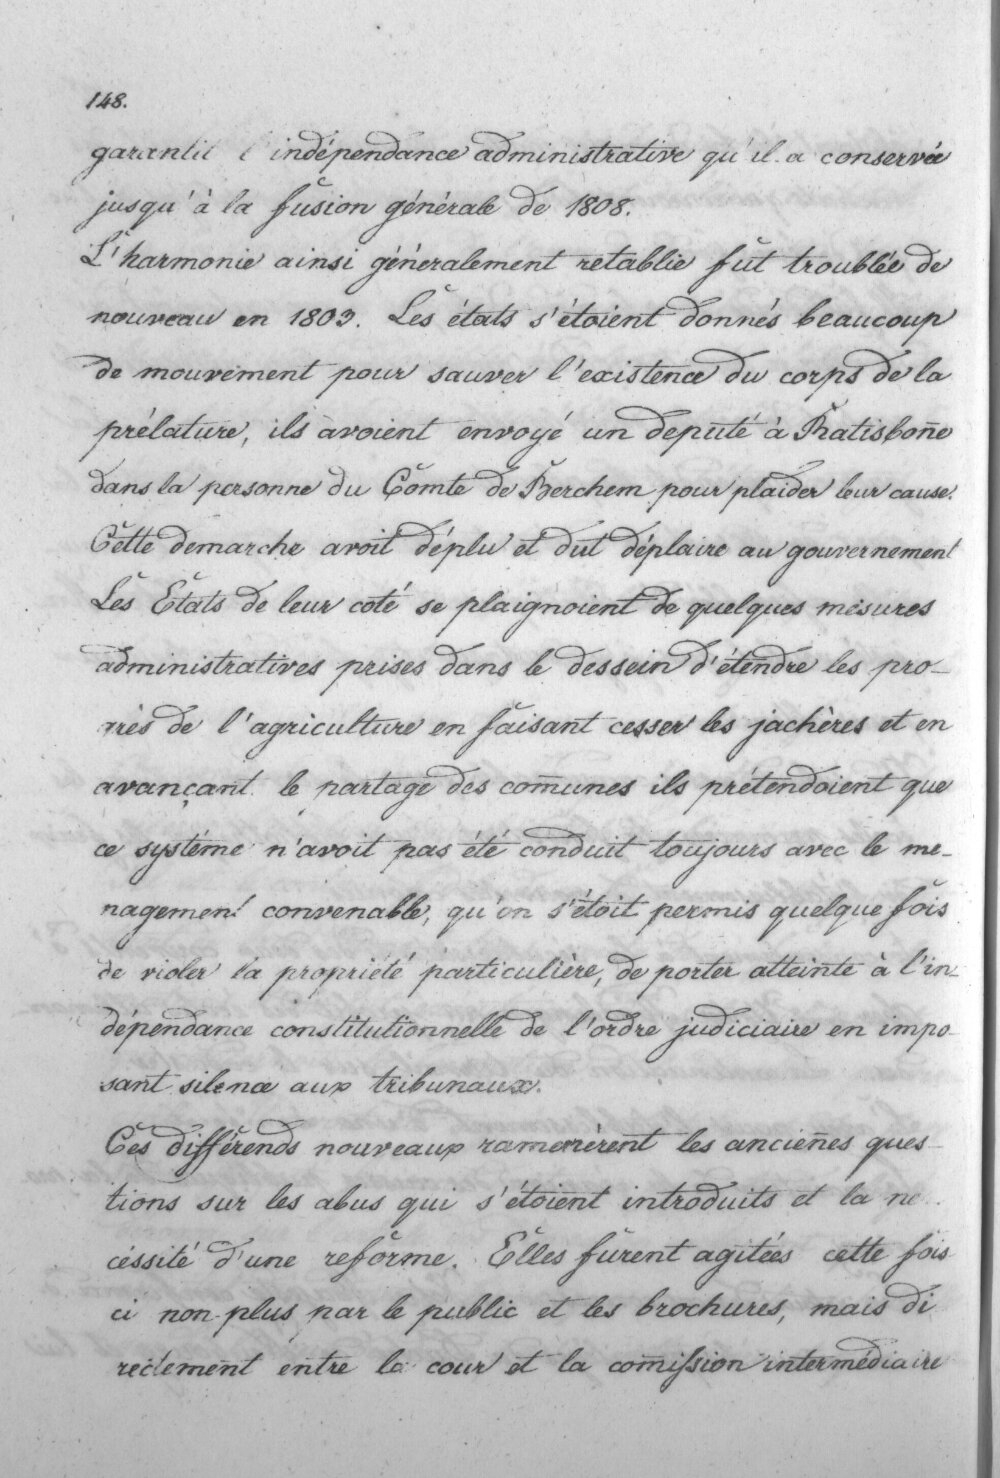 148.
garantit l'indépendance administrative qu'il a conservée
jusqu'à la fusion générale de 1808.
L'harmonie ainsi généralement retablie fut troublée de
nouveau en 1803. Les états s'étoient donnés beaucoup
de mouvement pour sauver l'existence du corps de la
prélature, ils avoient envoyé un deputé à Ratisbon̄e
dans la personne du Comte de Berchem pour plaider leur cause.
Cette demarche avoit déplu et dut déplaire au gouvernement
Les Etats de leur coté se plaignoient de quelques mesures
administratives prises dans le dessein d'étendre les pro-
grès de l'agriculture en faisant cesser les jachères et en
avançant le partage des com̄unes ils prétendoient que
ce systéme n'avoit pas été conduit toujours avec le me-
nagement convenable, qu'on s'étoit permis quelque fois
de violer la propriété particulière, de porter atteinte à l'in-
dépendance constitutionnelle de l'ordre judiciaire en impo-
sant silence aux tribunaux.
Ces différends nouveaux ramenèrent les ancien̄es ques-
tions sur les abus qui s'étoient introduits et la ne-
céssité d'une reforme. Elles furent agitées cette fois
ci non plus par le public et les brochures, mais di
rectement entre la cour et la com̄ission intermédiaire